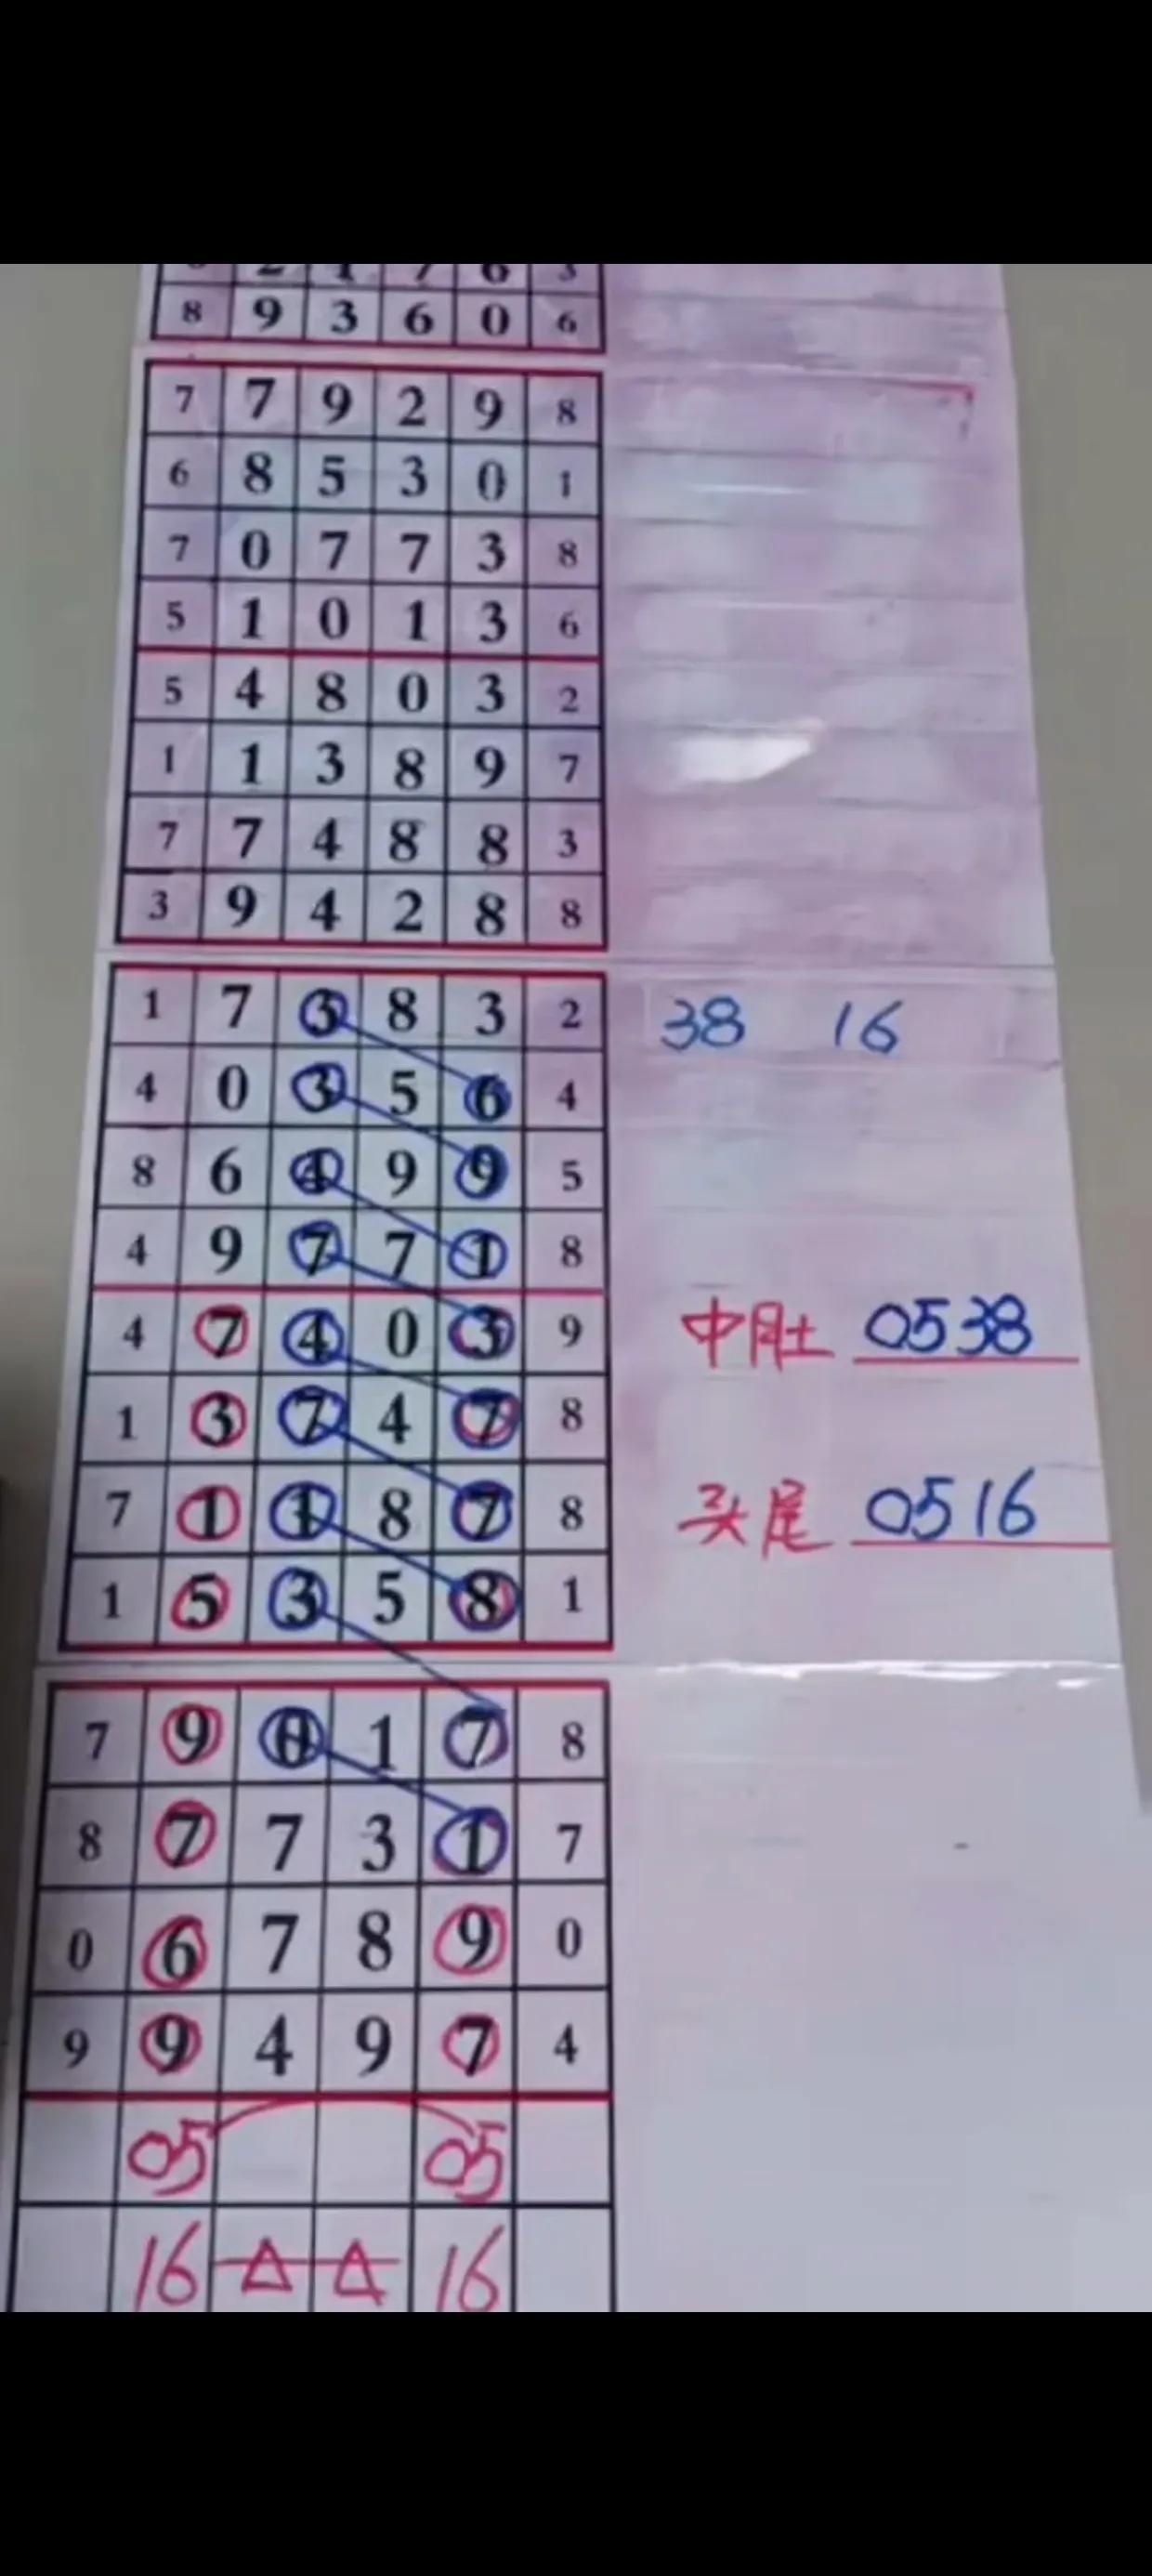 8 9 3 6 0 6
7 7 9 2 9 8
6 8 5 3 0 1
7 0 7 7 3 8
5 1 0 1 3 6
5 4 8 0 3 2
1 1 3 8 9 7
7 7 4 8 8 3
3 9 4 2 8 8
1 7 3 8 3 2 38 16
4 0 3 5 6 4
8 6 4 9 9 5
4 9 7 7 1 8
4 7 4 0 3 9 中肚 0538
1 3 7 4 7 8
7 1 1 8 7 8 头尾 0516
1 5 3 5 8 1
7 9 0 1 7 8
8 7 7 3 1 7
0 6 7 8 9 0
9 9 4 9 7 4
05 05
16 16